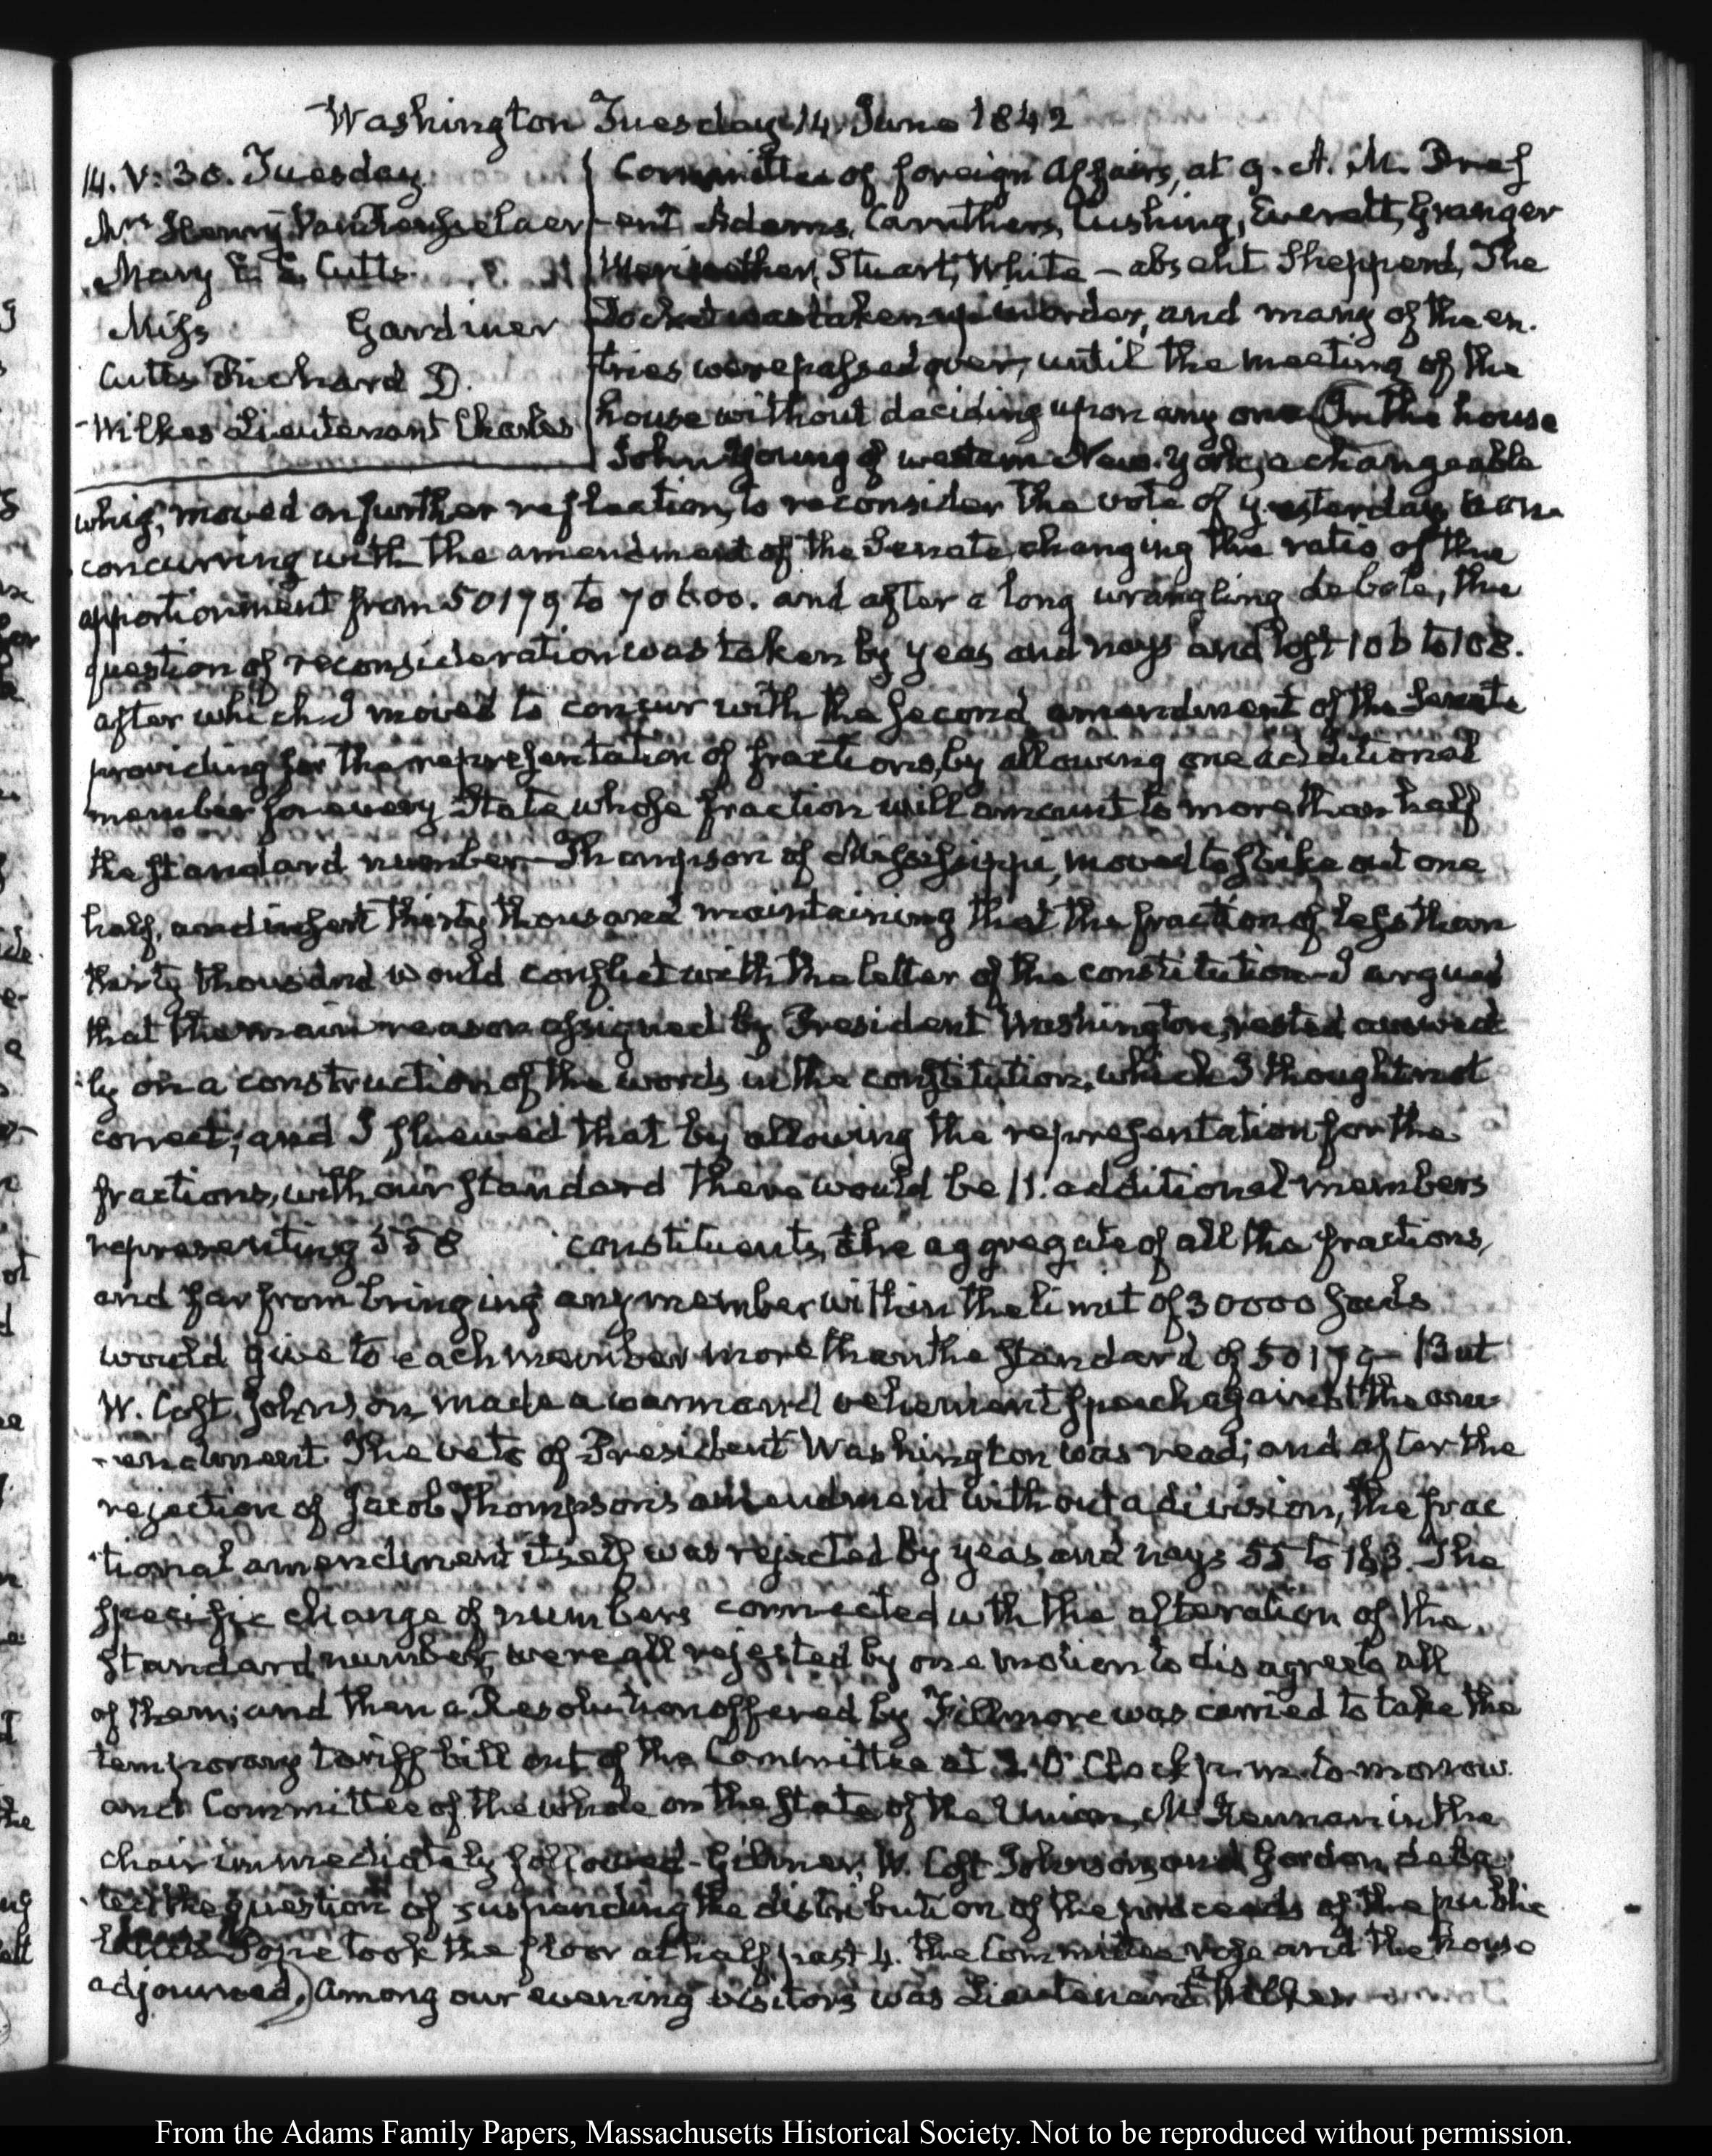 Washington Tuesday 14. June 1842
14. V: 30. Tuesday
Mrs Henry Van Rensselaer
Mary E. E. Cutts
Miss Gardiner
Cutts Richard D.
Wilkes Lieutenant Charles
Committee of foreign Affairs, at 9. A. M. Pres
-ent Adams, Caruthers, Cushing, Everett, Granger
Meriwether, Stuart, White – absent Shepperd, The
Docket was taken up in order, and many of the en-
tries were passed over, until the meeting of the
house without deciding upon any one (In the house
John Young of western New-York, a changeable
whig, moved on further reflection, to reconsider the vote of yesterday non-
concurring with the amendment of the Senate, changing the ratio of the
apportionment from 50179 to 70600. and after a long wrangling debate, the
question of reconsideration was taken by yeas and nays and lost 106 to 108.
after which I moved to concur with the second amendment of the Senate
providing for the representation of fractions, by allowing one additional
member for every State whose fraction will amount to more than half
the standard number – Thompson of Mississippi, moved to strike out one
half, and insert thirty thousand maintaining that the fraction of less than
thirty thousand would conflict with the letter of the constitution – I argued
that the main reason assigned by President Washington, rested avowed
-ly on a construction of the words in the constitution, which I thought not
correct; and I shewed that by allowing the representation for the
fractions, with our standard there would be 11. additional members
representing 558 constituents, the aggregate of all the fractions,
and far from bringing any member within the limit of 30000 souls
would give to each member more than the standard of 50179 – But
W. Cost Johnson made a warm and vehement speach against the am-
-endment. The veto of President Washington was read; and after the
rejection of Jacob Thompson's amendment without a division, the frac
-tional amendment itself was rejected by yeas and nays 55 to 153. The
specific change of numbers connected with the alteration of the
standard number, were all rejected by one motion to disagree to all
of them; and then a Resolution offered by Fillmore was carried to take the
temporary tariff bill out of the Committee at 2. O'Clock p. m. to-morrow.
and Committee of the whole on the state of the Union, McKennan in the
chair immediately followed – Gilmer, W. Cost Johnson, and Gordon, deba
ted the question of suspending the distribution of the proceeds of the public
lands Pope took the floor at half past 4. the Committee rose and the house
adjourned.) Among our evening visitors was Lieutenant Wilkes
From the Adams Family Papers, Massachusetts Historical Society. Not to be reproduced without permission.